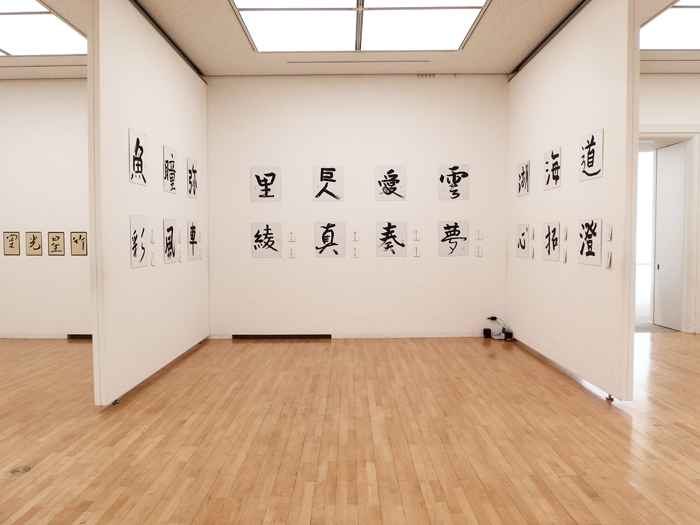 魚 瞳 弥
彩 風 車
里 巨人 愛 雲
綾 真 奏 夢
湖 海 道
心 拓 澄
空 光 星 竹